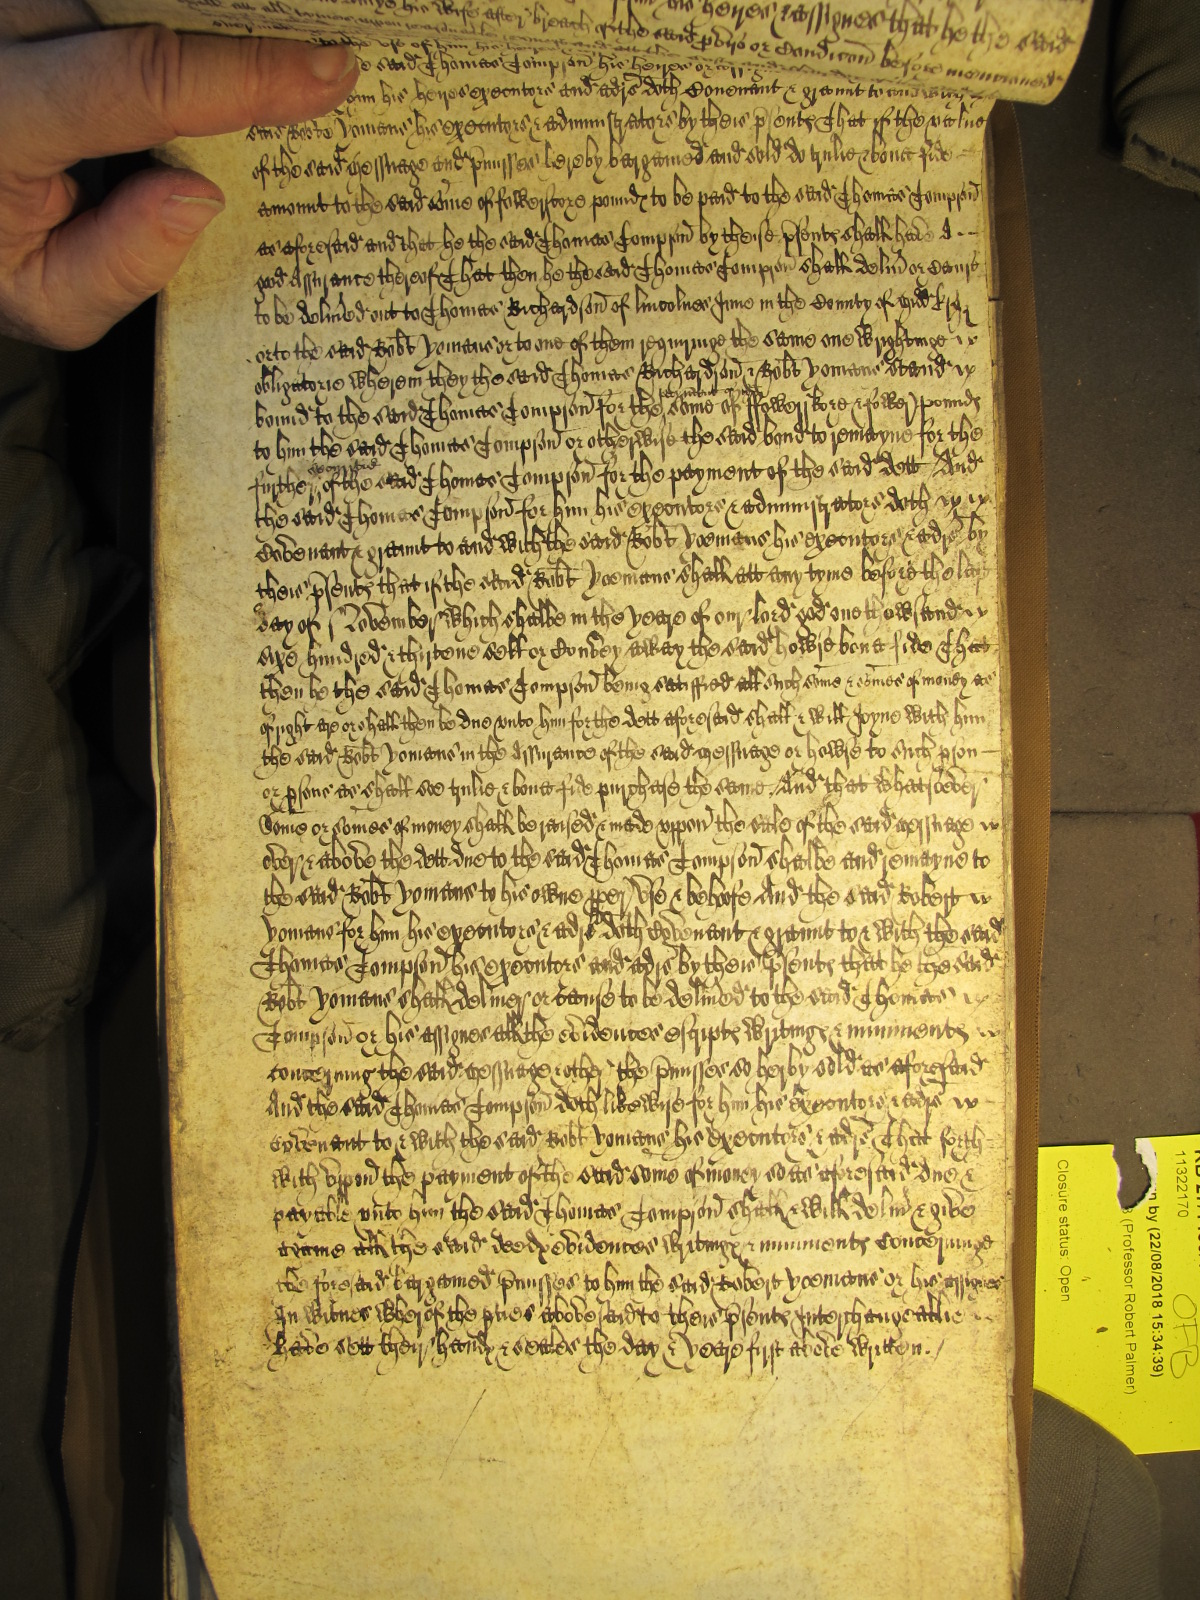 his wife after breach of the said pviso or Condicon before mencioned
heires & assignes that he the said
to the use of him his heires
the said Thomas Tompson his heires or
his heires executors and admrs doth Covenant & graunt to and with the
said Robte Yomans his executors & administrators by theis psents That if the value
of the said messuage and pmisses hereby bargained and sold do trulie & bona fide
amount to the said some of fowerscore pounds to be paid to the said Thomas Tompson
as aforesaid and that he the said Thomas Tompson by theise psents shall have a
good Assurance thereof That then he the said Thomas Tompson shall deliu or Cause
to be deliued out to Thomas Richardson of lincolnes Inne in the County of Midd
or to the said Robt Yomans or to one of them requiringe the same one Wrightinge
obligatorie wherein they the said Thomas Richardson & Robt Yomans stand
bound to the said Thomas Tompson for the some of ffowerskore & fower pounds
to him the said Thomas Tompson or otherwise the said bond to remayne for the
further securitie of the said Thomas Tompson for the payment of the said dett And
the said Thomas Tompson for him his executors & administrators doth
Covenant & graunt to and with the said Robt Yeomans his executors & admrs by
theis psents that if the said Robt Yeomans shall att any tyme before the last
day of November which shalbe in the yeare of our lord god one thowsand
sixe hundred & thirtene sell or Convey away the said howse bona fide That
then he the said Thomas Tompson being satisfied all such some & somes of money as
of right are or shall then be due unto him for the dett aforesaid shall & will Joyne with him
the said Robt Yomans in the Assurance of the said messuage or howse to such pson
or psons as shall soe trulie & bona fide purchase the same. And that whatsoever
Some or somes of money shall be raised & made uppon the sale of the said messuage
over & above the dett due to the said Thomas Tompson shalbe and remayne to
the said Robt Yomans to his owne pper use & behoofe And the said Robert
Yomans for him his executors & admrs doth Covenant & graunt to & with the said
Thomas Tompson his executors and admrs by theis psents that he the said
Robt Yomans shall deliuer or cause to be deliued to the said Thomas
Tompson or his assignes all the evidences escripts writings & muniments
concerning the said messuage & other the pmisses so herby sold as aforesaid
And the said Thomas Tompson doth likewise for him his executors & admrs
Covenant to & with the said Robt Yomans his executors & admrs That forth
with uppon the payment of the said some of money so as aforesaid due &
payable unto him the said Thomas Tompson shall & will deliu & give
againe all the said deeds evidences writings & muniments Concerninge
the foresaid bargained pmisses to him the said Robert Yeomans or his assignes
In witnes wherof the pties abovesaid to theis psents Interchangeablie
have sett their hands & seales the day & yeare first above written./
11322170
by (22/08/2018 15:34:39)
(Professor Robert Palmer)
Closure status: Open